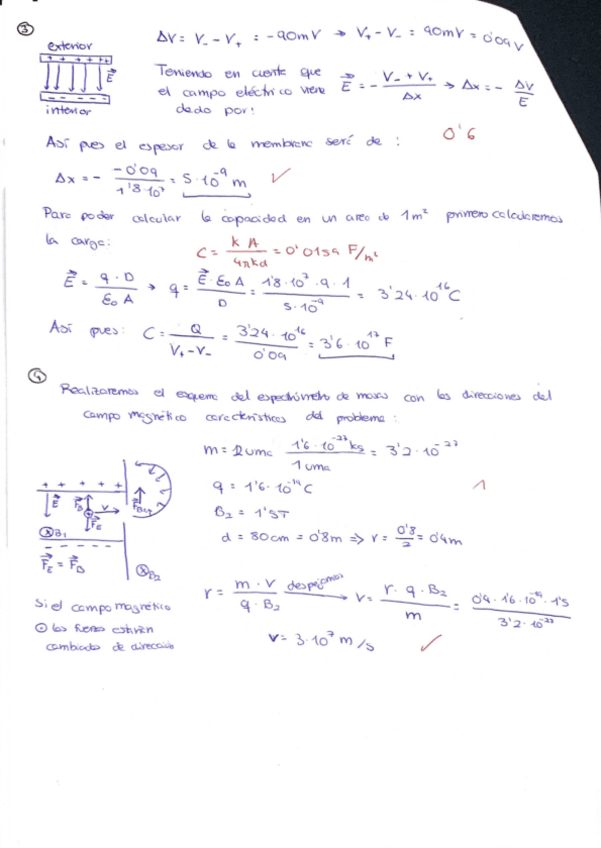 ③
exterior
+ + + + + +
E
- - - - -
interior
ΔV = V₋ - V₊ = -90mV → V₊ - V₋ = 90mV = 0'09 V
Teniendo en cuenta que el campo eléctrico viene dado por:
E = - (V₋ + V₊)/Δx → Δx = - ΔV/E
Así pues el espesor de la membrana será de :
0'6
Δx = - (-0'09)/(1'8·10⁷) = 5·10⁻⁹ m ✓
Para poder calcular la capacidad en un area de 1m² primero calcularemos
la carga:
C = k A/(4πkd) = 0'0159 F/m²
E = q·D/(ε₀ A) → q = E·ε₀ A/D = 1'8·10⁷·9·1/(5·10⁻⁹) = 3'24·10¹⁶ C
Así pues: C = Q/(V₊-V₋) = 3'24·10¹⁶/0'09 = 3'6·10¹⁷ F
④
Realizaremos el esquema del espectrómetro de masas con las direcciones del
campo magnético características del problema:
m = 2 uma 1'6·10⁻²⁷ kg/1 uma = 3'2·10⁻²⁷
q = 1'6·10⁻¹⁹ C
1
B₂ = 1'5T
d = 80cm = 0'8m ⇒ r = 0'8/2 = 0'4m
+ + + + +
E
F_B
v
F_E
⊗B₁
- - - - -
F_E = F_B
⊗B₂
r = m·v/(q·B₂) despejamos → v = r·q·B₂/m = 0'4·1'6·10⁻¹⁹·1'5/(3'2·10⁻²⁷)
v = 3·10⁷ m/s ✓
Si el campo magnético
⊙ las fuerzas estarían
cambiadas de dirección